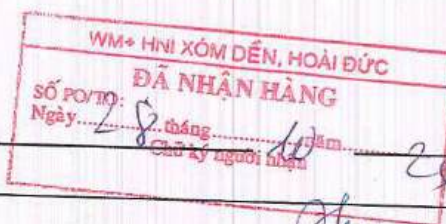 WM+ HNI XÓM DẾN, HOÀI ĐỨC
ĐÃ NHẬN HÀNG
SỐ PO/TO:
Ngày 28 tháng 10 năm 2
Chữ ký người nhận